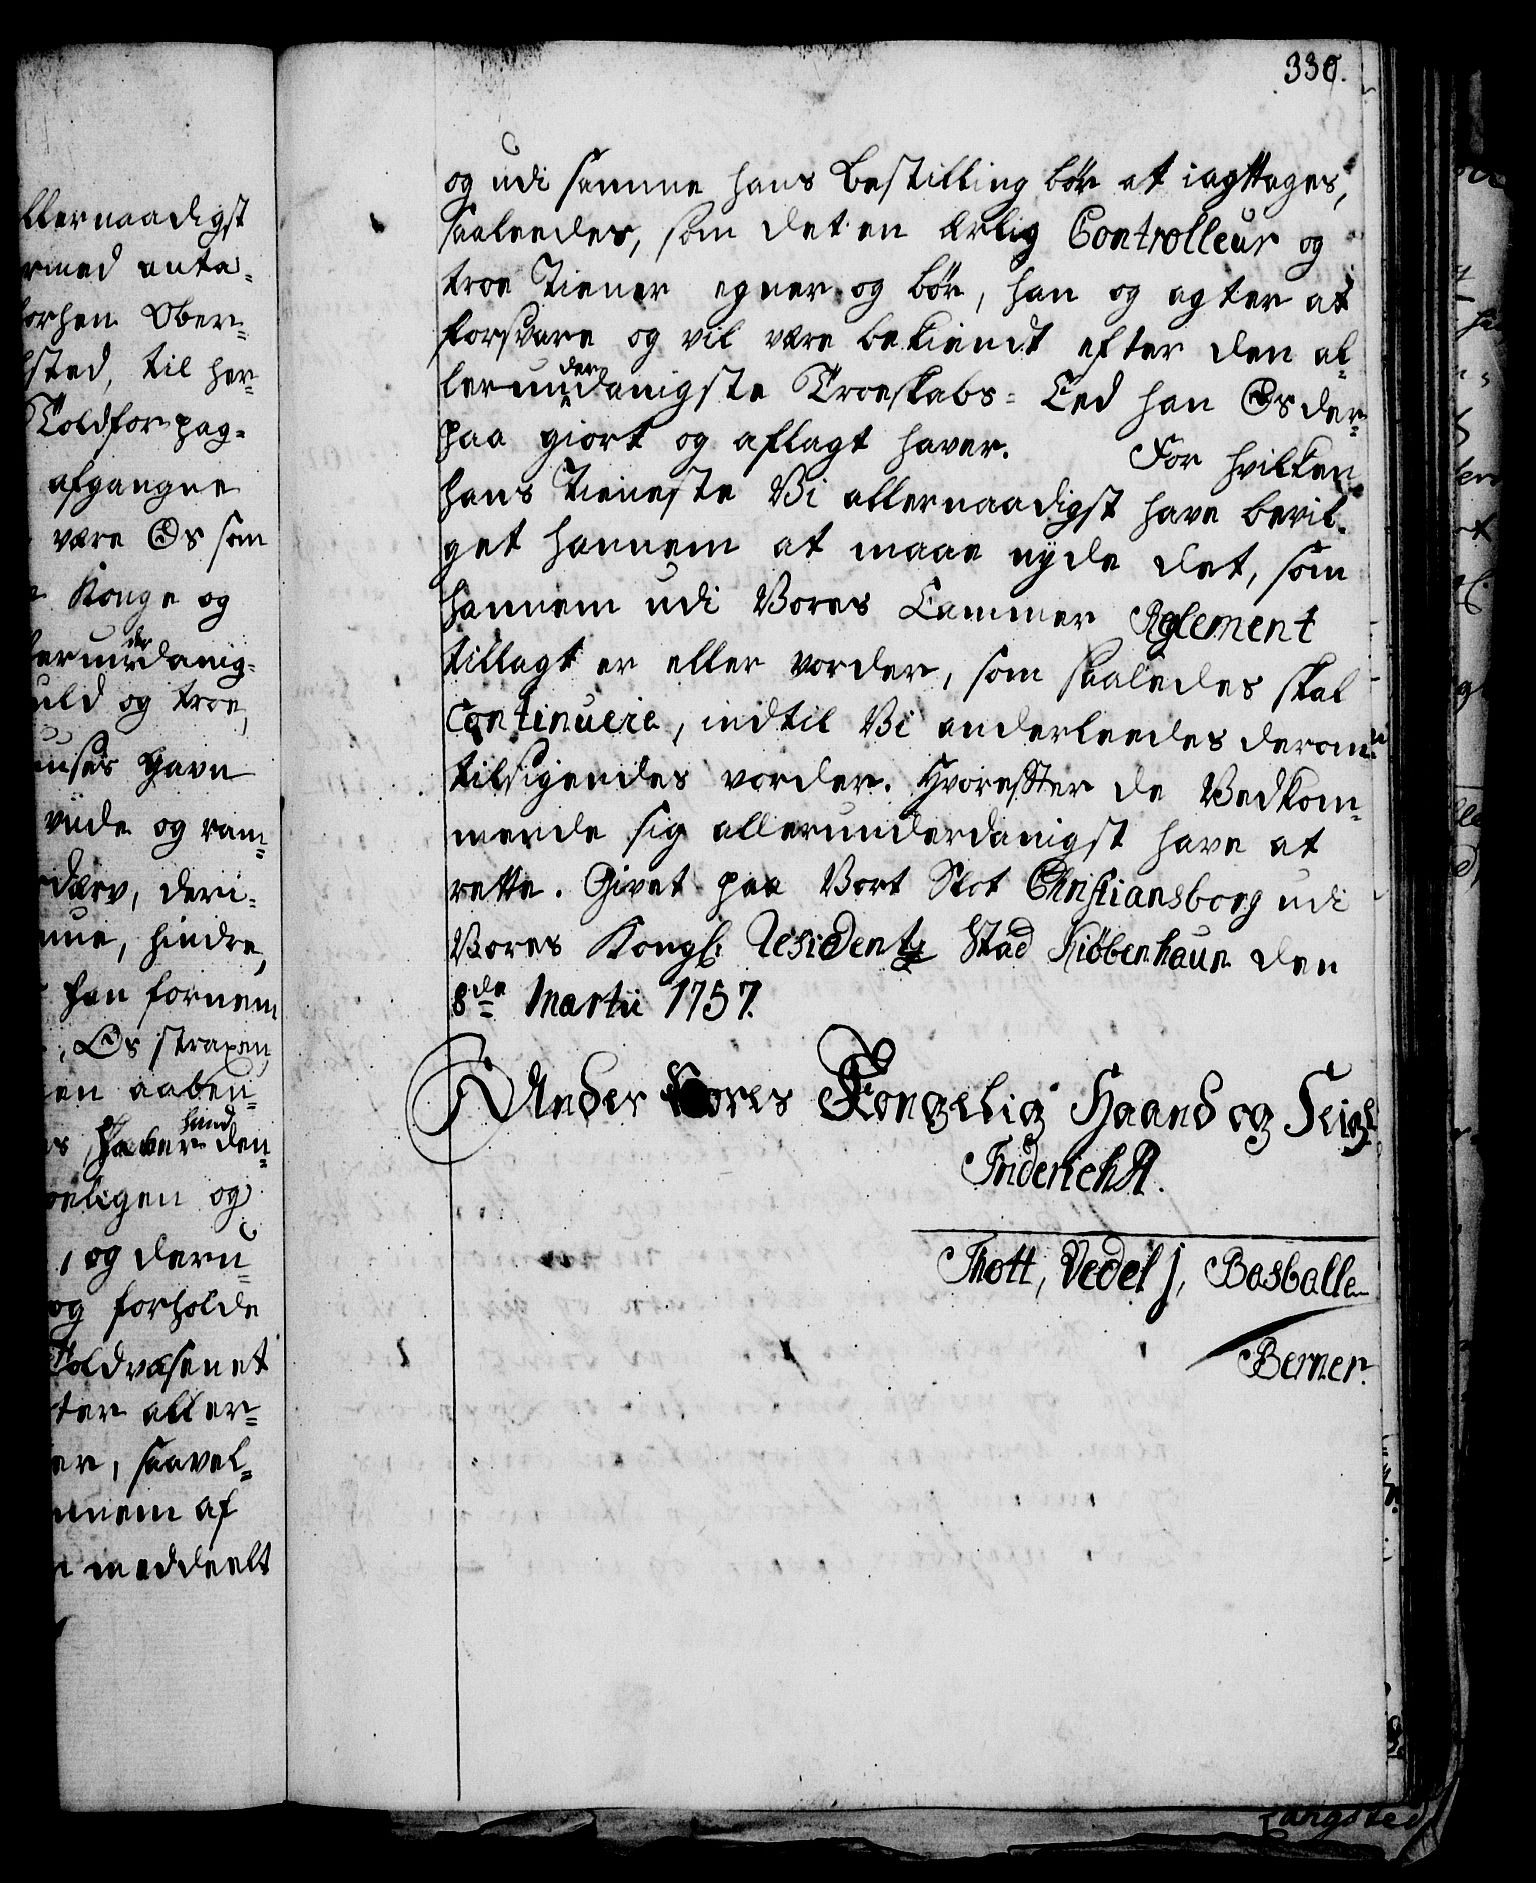 330.
og udi samme hans Bestilling bör at iagttages,
saaleedes, som det en ærlig Controlleur og
troe Tiener egner og bör, han og agter at
forsvare og vil være bekiendt efter den al-
lerunderdanigste Troeskabs-Eed han Os der-
paa giort og aflagt haver. For hvilken
hans Tieneste Vi allernaadigst have bevil-
get hannem at maae nyde det, som
hannem udi Vores Cammer Reglement
tillagt er eller vorder, som saaledes skal
Continuere, indtil Vi anderleedes derom
tilsigendes vorder. Hvorefter de Vedkom-
mende sig allerunderdanigst have at
rette. Givet paa Vort Slot Christiansborg udi
Vores Kongl: Residentz Stad Kiöbenhaun den
8de Martii 1757.
Under Vores Kongelig Haand og Seigl
Friderich R.
Thott, Vedel j, Basballe
Berner.
llernaadigst
rmed anta-
forhen Ober-
hsted, til her-
Toldforpag-
afgangne
være Os som
Konge og
lerunderdanig-
uld og troe,
uses Gavn
viide og ram-
dærv, deri-
nne, hindre,
han fornem
, Os straxen,
en aaben-
den-
veligen og
, og deru-
og forholde
Toldvæsenet
ter aller-
er, saavel-
nnem af
n meddeelt
Langsted